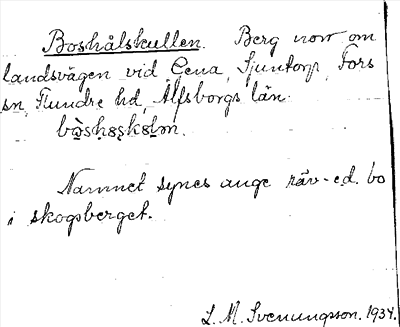 Boshålskullen. Berg norr om
landsvägen vid Gena, Sjuntorp, Fors
sn, Flundre hd, Älfsborgs län.
Namnet synes ange räv- ed. bo
i skogsberget.
L. M. Svenungsson. 1934.